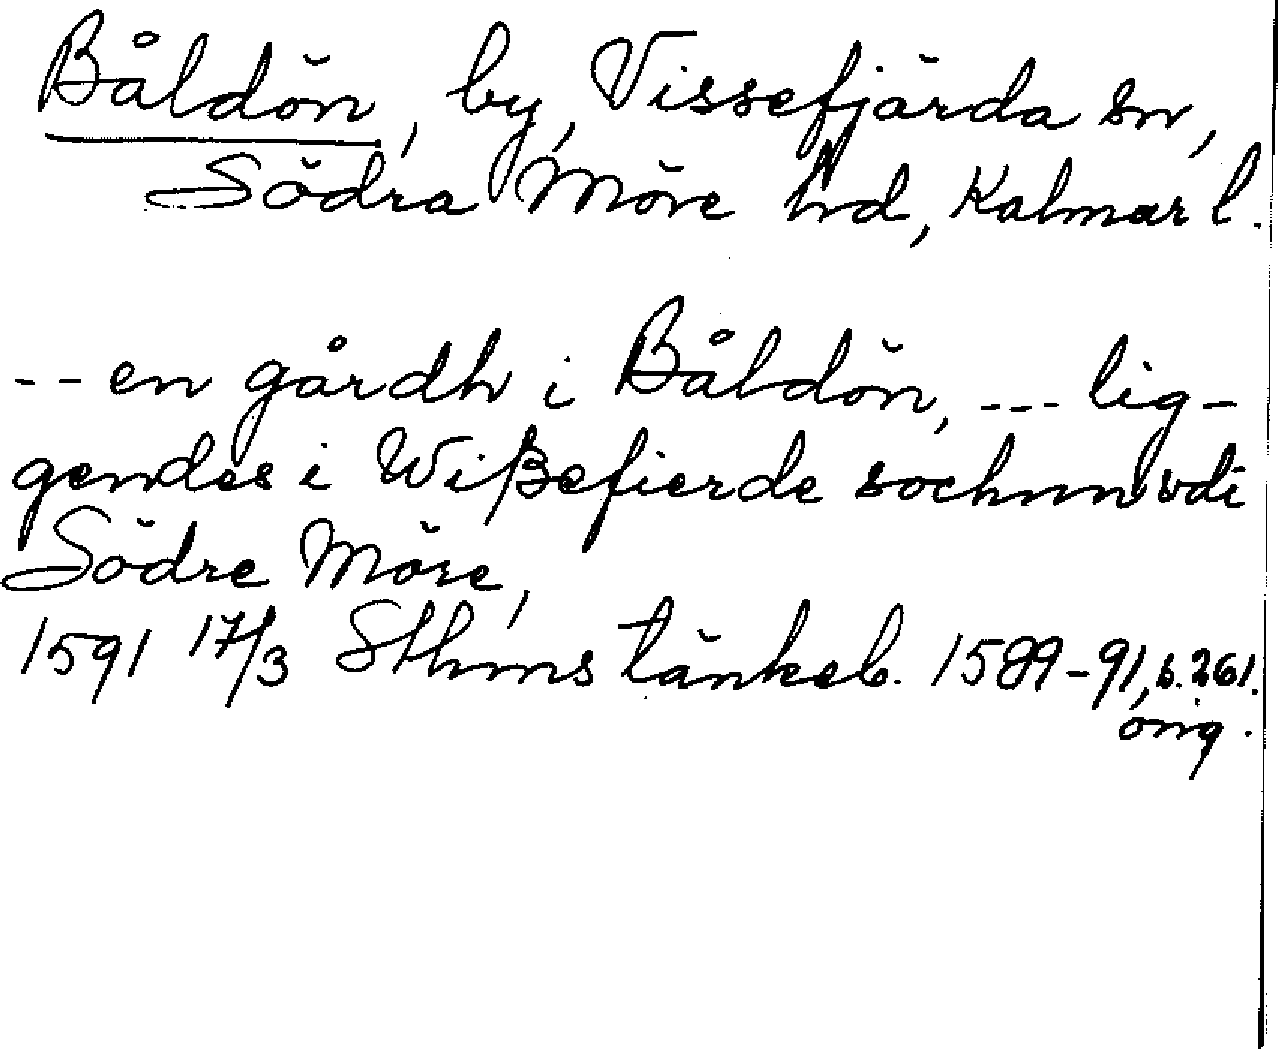 Båldön, by, Vissefjärda sn,
Södra Möre hd, Kalmar l.
-- en gårdh i Båldön, --- lig-
gendes i Wißefierde sochnn vdi
Södre Möre,
1591 17/3 Sthms tänkeb. 1589-91, s. 261.
orig.